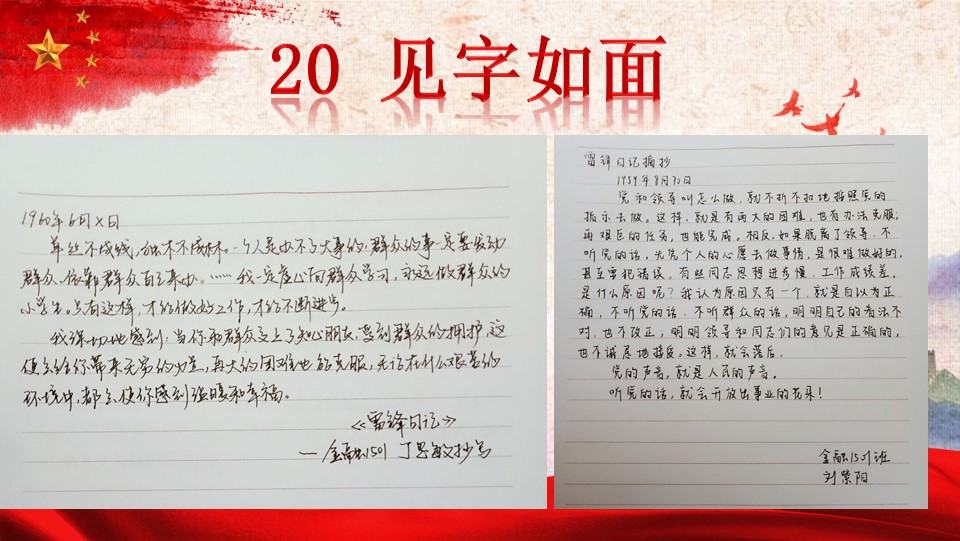 20 见字如面
1960年6月X日
单丝不成线,独木不成林。一个人是办不了大事的,群众的事一定要发动
群众、依靠群众自己来办。……我一定虚心向群众学习,永远做群众的
小学生。只有这样,才能做好工作,才能不断进步。
我深切地感到:当你和群众交上了知心朋友,受到群众的拥护,这
便会给你带来无穷的力量,再大的困难也能克服,无论在什么艰苦的
环境中,都会使你感到温暖和幸福。
《雷锋日记》
—金融1501 丁思敏抄写
雷锋日记摘抄
1959年8月30日
党和领导叫怎么做,就不折不扣地按照党的
指示去做。这样,就是有再大的困难,也有办法克服;
再艰巨的任务,也能完成。相反,如果脱离了领导,不
听党的话,光凭个人的心愿去做事情,是很难做好的,
甚至要犯错误。有些同志思想进步慢,工作成绩差,
是什么原因呢?我认为原因只有一个,就是自以为正
确,不听党的话,不听群众的话,明明自己的看法不
对,也不改正;明明领导和同志们的意见是正确的,
也不诚恳地接受。这样,就会落后。
党的声音,就是人民的声音。
听党的话,就会开放出事业的花朵!
金融1501班
刘紫阳